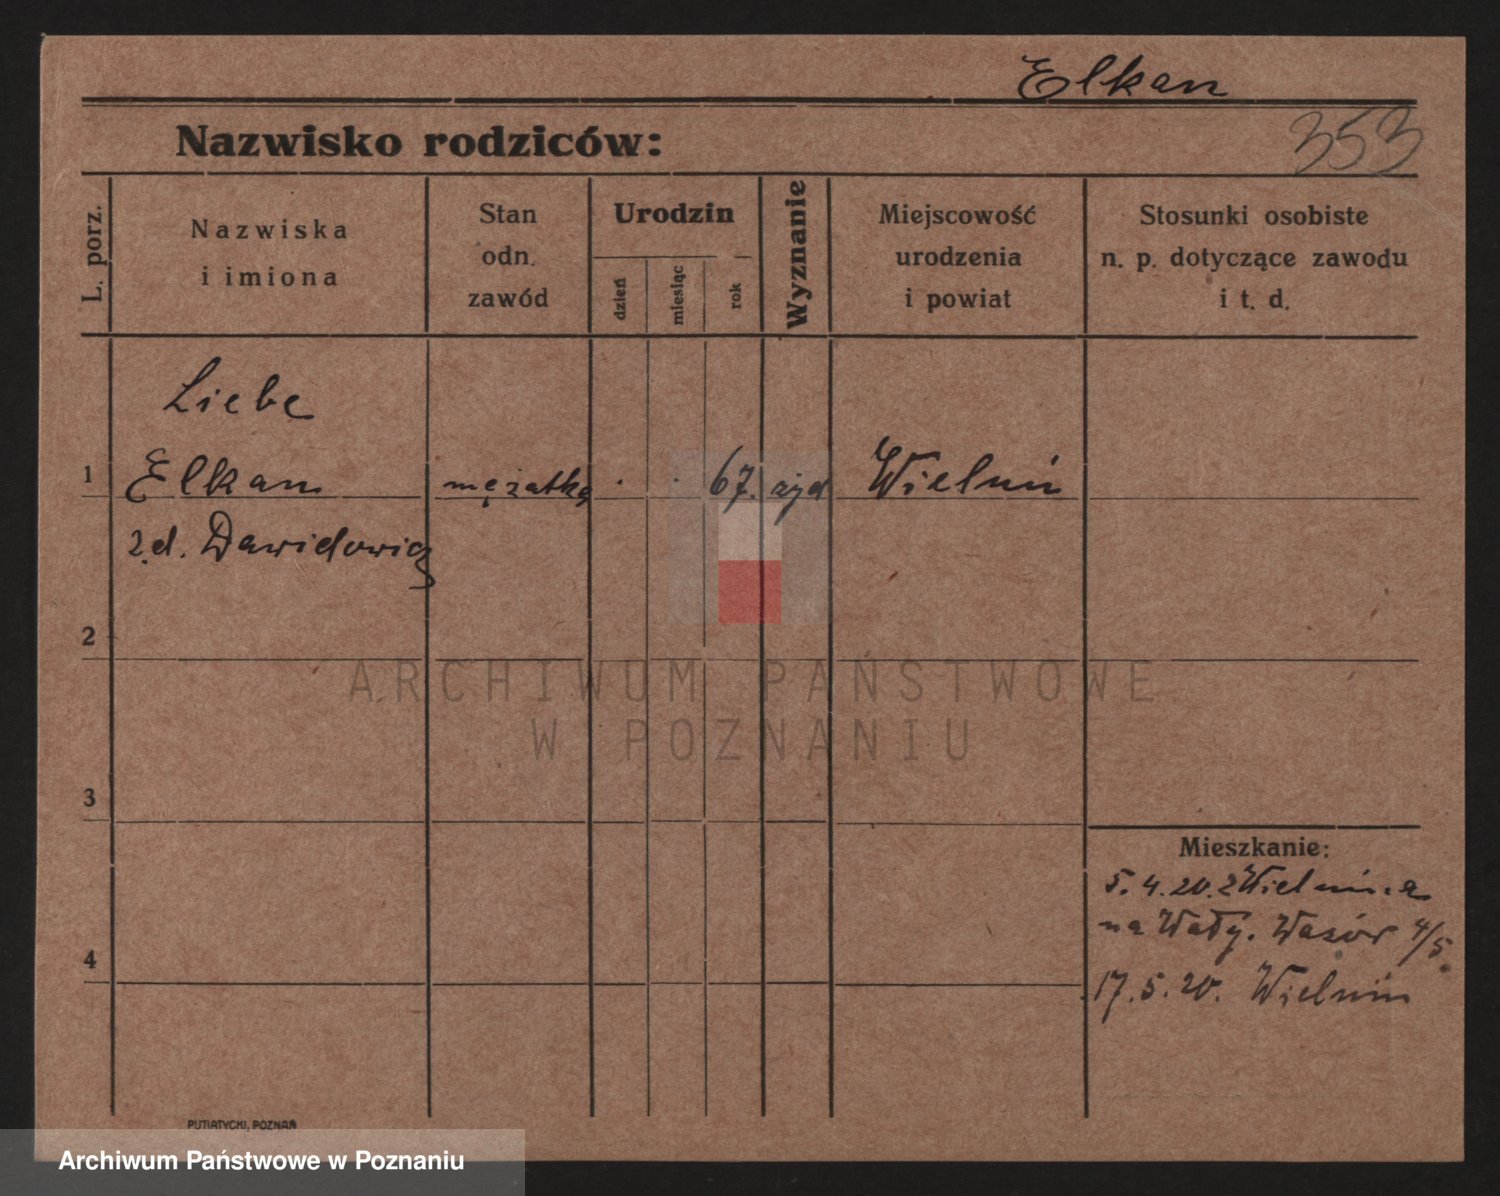 Elkan
353
Nazwisko rodziców:
L. porz.
Nazwiska
i imiona
Stan
odn.
zawód
Urodzin
dzień
miesiąc
rok
Wyznanie
Miejscowość
urodzenia
i powiat
Stosunki osobiste
n. p. dotyczące zawodu
i t. d.
Liebe
1 Elkan mężatka . . 67. żyd Wieluń
z.d. Dawidowicz
2
ARCHIWUM PAŃSTWOWE
W POZNANIU
3
Mieszkanie:
5.4.20. z Wielunia
na Wały. 4/5
4
17.5.20. Wieluń
PUTIATYCKI, POZNAŃ
Archiwum Państwowe w Poznaniu